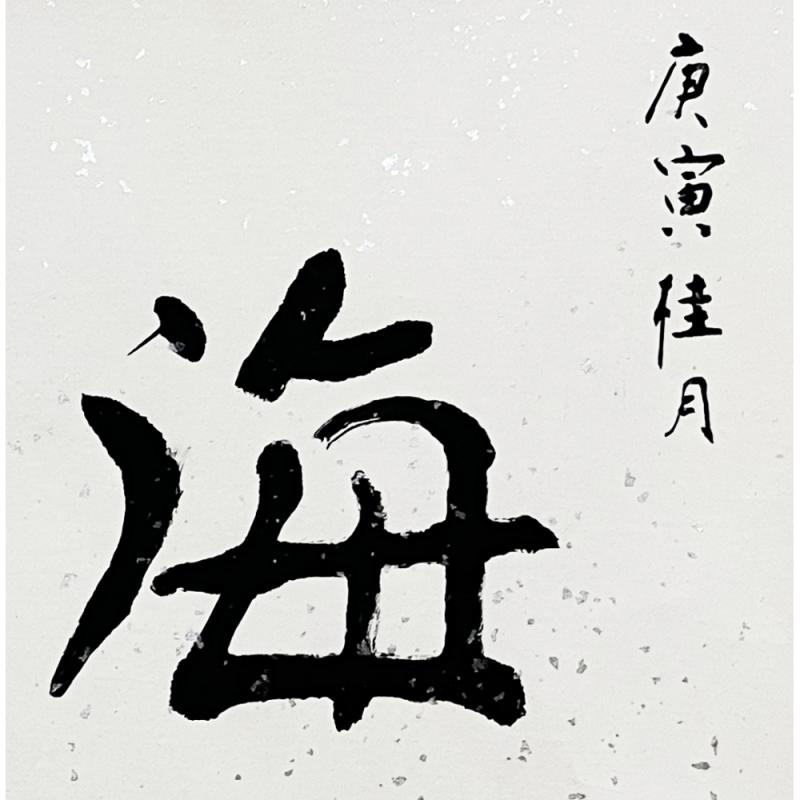 庚寅桂月
海